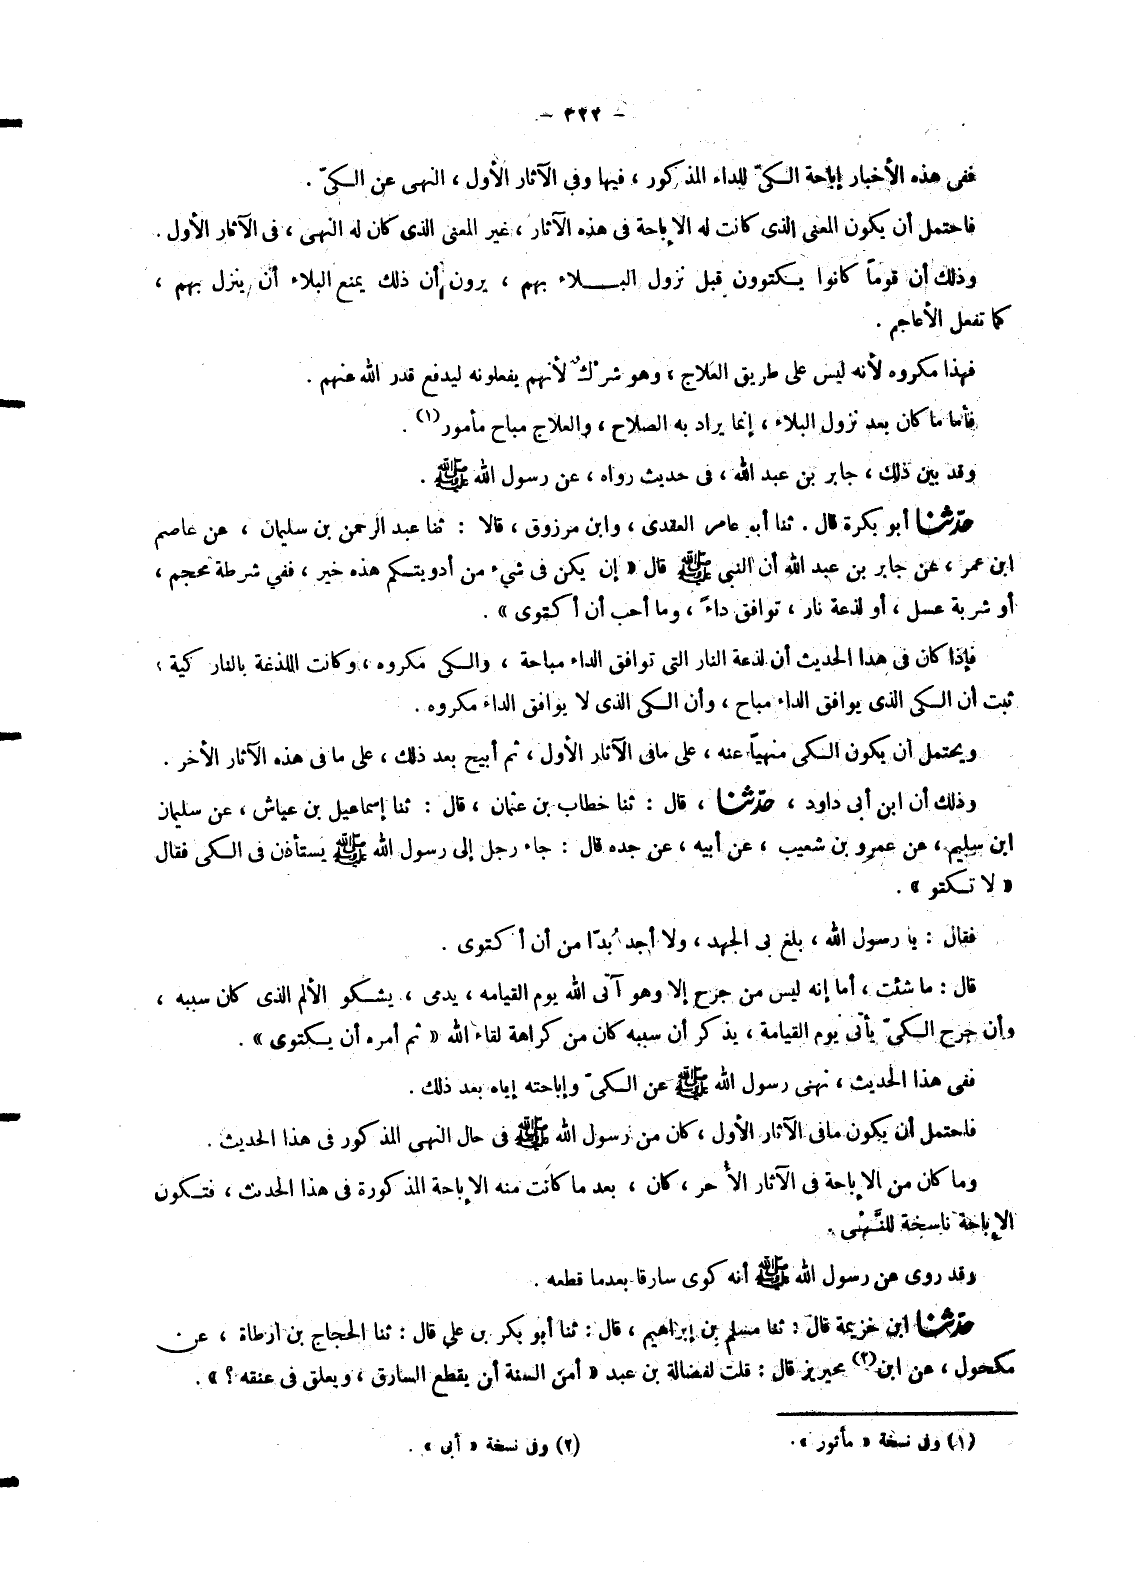 - ٣٢٢ -
ففى هذه الأخبار إباحة الكىّ للداء المذكور ، فيها وفى الآثار الأول ، النهى عن الكىّ .
فاحتمل أن يكون المعنى الذى كانت له الإباحة فى هذه الآثار ، غير المعنى الذى كان له النهى ، فى الآثار الأول .
وذلك أن قوماً كانوا يكتوون قبل نزول البلاء بهم ، يرون أن ذلك يمنع البلاء أن ينزل بهم ،
كما تفعل الأعاجم .
فهذا مكروه لأنه ليس على طريق العلاج ، وهو شرْكٌ لأنهم يفعلونه ليدفع قدر الله عنهم .
فأما ما كان بعد نزول البلاء ، إنما يراد به الصلاح ، والعلاج مباح مأمور (١) .
وقد بين ذلك ، جابر بن عبد الله ، فى حديث رواه ، عن رسول الله ﷺ .
حدّثنا أبو بكرة قال . ثنا أبو عامر العقدى ، وابن مرزوق ، قالا : ثنا عبد الرحمن بن سليمان ، عن عاصم
ابن عمر ، عن جابر بن عبد الله أن النبى ﷺ قال « إن يكن فى شىء من أدويتكم هذه خير ، ففي شرطة محجم ،
أو شربة عسل ، أو لذعة نار ، توافق داءً ، وما أحب أن أكتوى » .
فإذا كان فى هذا الحديث أن لذعة النار التى توافق الداء مباحة ، والكى مكروه ، وكانت اللذغة بالنار كية ،
ثبت أن الكى الذى يوافق الداء مباح ، وأن الكى الذى لا يوافق الداء مكروه .
ويحتمل أن يكون الكى منهيّاً عنه ، على مافى الآثار الأول ، ثم أبيح بعد ذلك ، على ما فى هذه الآثار الأخر .
وذلك أن ابن أبى داود ، حدّثنا ، قال : ثنا خطاب بن عثمان ، قال : ثنا إسماعيل بن عياش ، عن سليمان
ابن سليم ، عن عمرو بن شعيب ، عن أبيه ، عن جده قال : جاء رجل إلى رسول الله ﷺ يستأذن فى الكى فقال
« لا تكتو » .
فقال : يا رسول الله ، بلغ بى الجهد ، ولا أجد بُدّا من أن أكتوى .
قال : ما شئت ، أما إنه ليس من جرح إلا وهو آتى الله يوم القيامه ، يدمى ، يشكو الألم الذى كان سببه ،
وأن جرح الكىّ يأتى يوم القيامة ، يذكر أن سببه كان من كراهة لقاء الله « ثم أمره أن يكتوى » .
ففى هذا الحديث ، نهى رسول الله ﷺ عن الكىّ وإباحته إياه بعد ذلك .
فاحتمل أن يكون مافى الآثار الأول ، كان من رسول الله ﷺ فى حال النهى المذكور فى هذا الحديث .
وما كان من الإباحة فى الآثار الأُخر ، كان ، بعد ما كانت منه الإباحة المذكورة فى هذا الحديث ، فتكون
الإباحة ناسخة للنَّهْى .
وقد روى عن رسول الله ﷺ أنه كوى سارقا بعدما قطعه .
حدّثنا ابن خزيمة قال : ثنا مسلم بن إبراهيم ، قال : ثنا أبو بكر بن علي قال : ثنا الحجاج بن أرطاة ، عن
مكحول ، عن ابن (٢) محيريز قال : قلت لفضالة بن عبيد « أمن السنة أن يقطع السارق ، ويعلق فى عنقه ؟ » .
(١) وفى نسخة « مأثور » .
(٢) وفى نسخة « أبى » .